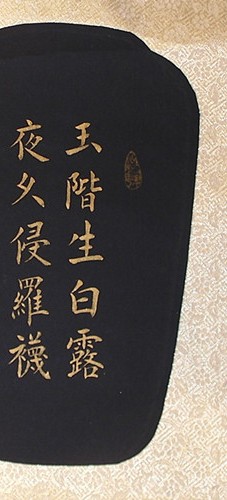 玉階生白露
夜久侵羅襪